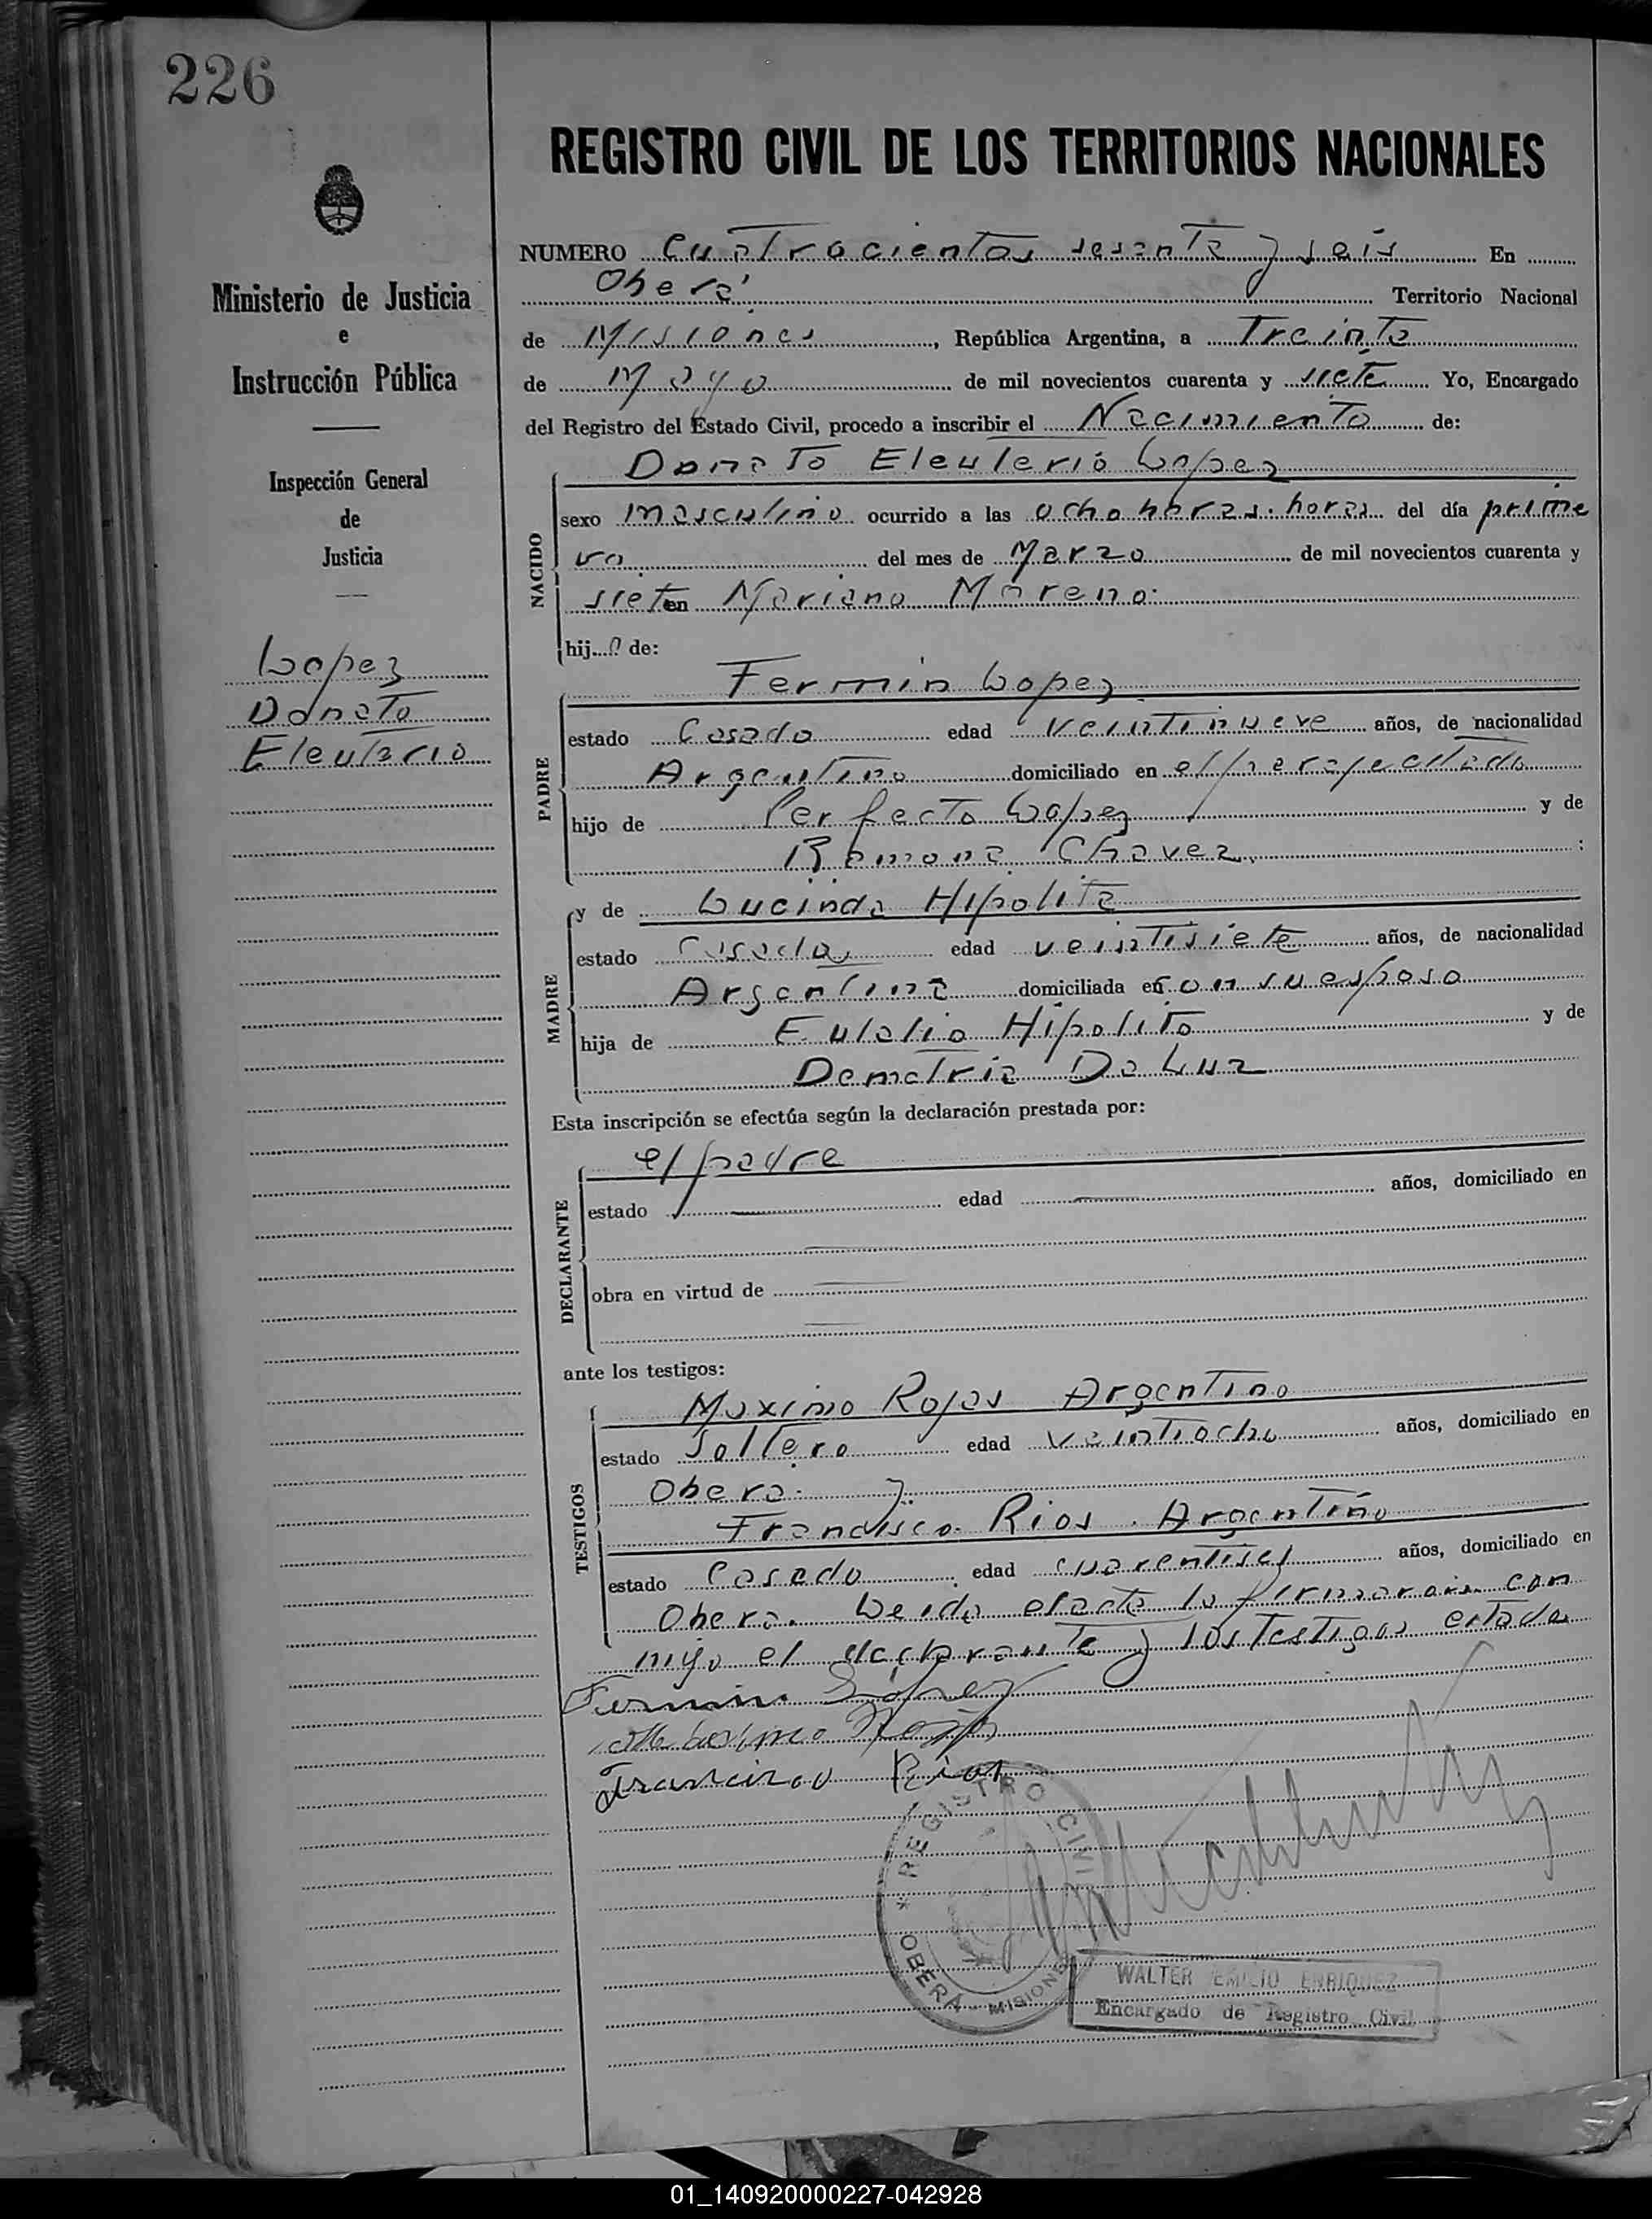 226
REGISTRO CIVIL DE LOS TERRITORIOS NACIONALES
Ministerio de Justicia
e
Instrucción Pública
Inspección General
de
Justicia
Lopez
Donato
Eleuterio
NUMERO Cuatrocientos sesenta y seis En
Oberá Territorio Nacional
de Misiones, República Argentina, a Treinta
de Mayo de mil novecientos cuarenta y siete Yo, Encargado
del Registro del Estado Civil, procedo a inscribir el Nacimiento de:
Donato Eleuterio Lopez
NACIDO
sexo masculino ocurrido a las ocho horas. horas del día prime
ro del mes de Marzo de mil novecientos cuarenta y
siete en Mariano Moreno.
hijo de:
Fermin Lopez
PADRE
estado Casado edad veintinueve años, de nacionalidad
Argentino domiciliado en el
hijo de Perfecto Lopez y de
Ramona Chavez :
MADRE
y de Lucinda Hipolita
estado Casada edad veintisiete años, de nacionalidad
Argentina domiciliada en con su esposo
hija de Eulalio Hipolito y de
Demetria Da Luz
Esta inscripción se efectúa según la declaración prestada por:
el padre
DECLARANTE
estado edad años, domiciliado en
obra en virtud de
ante los testigos:
TESTIGOS
Maximo Rojas Argentino
estado Soltero edad veintiocho años, domiciliado en
Obera. y.
Francisco Rios. Argentino
estado Casado edad años, domiciliado en
Obera. Leida el acta la firmaron con
migo el declarante y los testigos citados
Fermin Lopez
Maximo Rojas
Francisco Rios
REGISTRO CIVIL
OBERA - MISIONES
WALTER EMILIO ENRIQUEZ
Encargado de Registro Civil
01_140920000227-042928